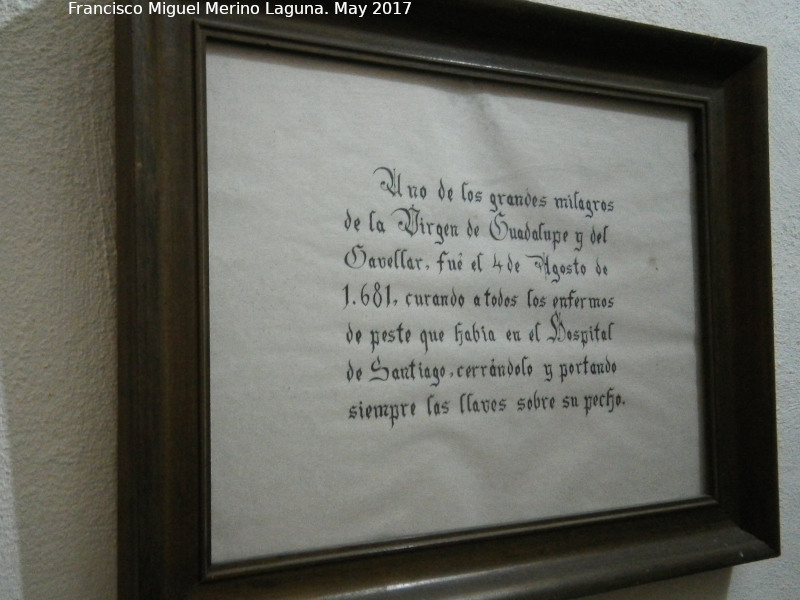 Francisco Miguel Merino Laguna. May 2017
Uno de los grandes milagros
de la Virgen de Guadalupe y del
Gavellar, fué el 4 de Agosto de
1.681, curando a todos los enfermos
de peste que había en el Hospital
de Santiago, cerrándolo y portando
siempre las llaves sobre su pecho.